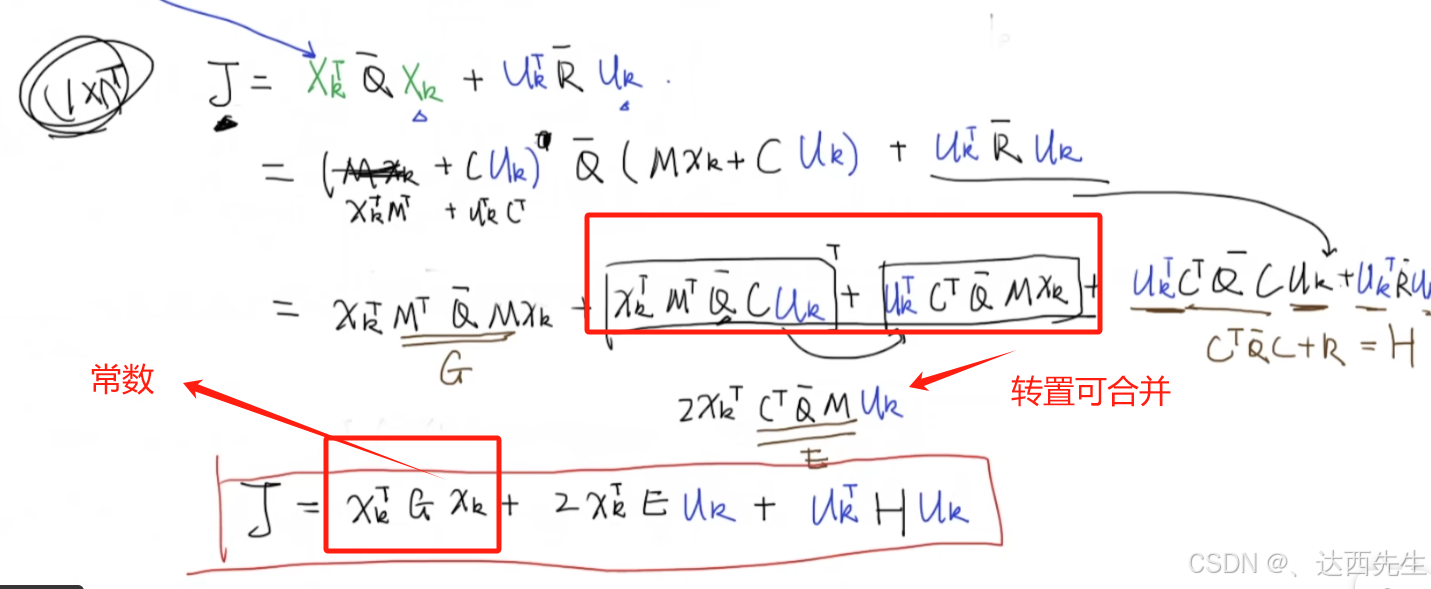 (1×1)ᵀ J = Xₖᵀ Q̄ Xₖ + Uₖᵀ R̄ Uₖ .
= ( + C Uₖ) Q̄ (M xₖ + C Uₖ) + Uₖᵀ R̄ Uₖ
xₖᵀ Mᵀ + uₖᵀ Cᵀ
= xₖᵀ Mᵀ Q̄ M xₖ + xₖᵀ Mᵀ Q̄ C Uₖ ᵀ + Uₖᵀ Cᵀ Q̄ M xₖ + Uₖᵀ Cᵀ Q̄ C Uₖ + Uₖᵀ R̄ U
G CᵀQ̄C + R = H
常数 转置可合并
2xₖᵀ Cᵀ Q̄ M Uₖ
E
J = xₖᵀ G xₖ + 2 xₖᵀ E Uₖ + Uₖᵀ H Uₖ
CSDN @、达西先生